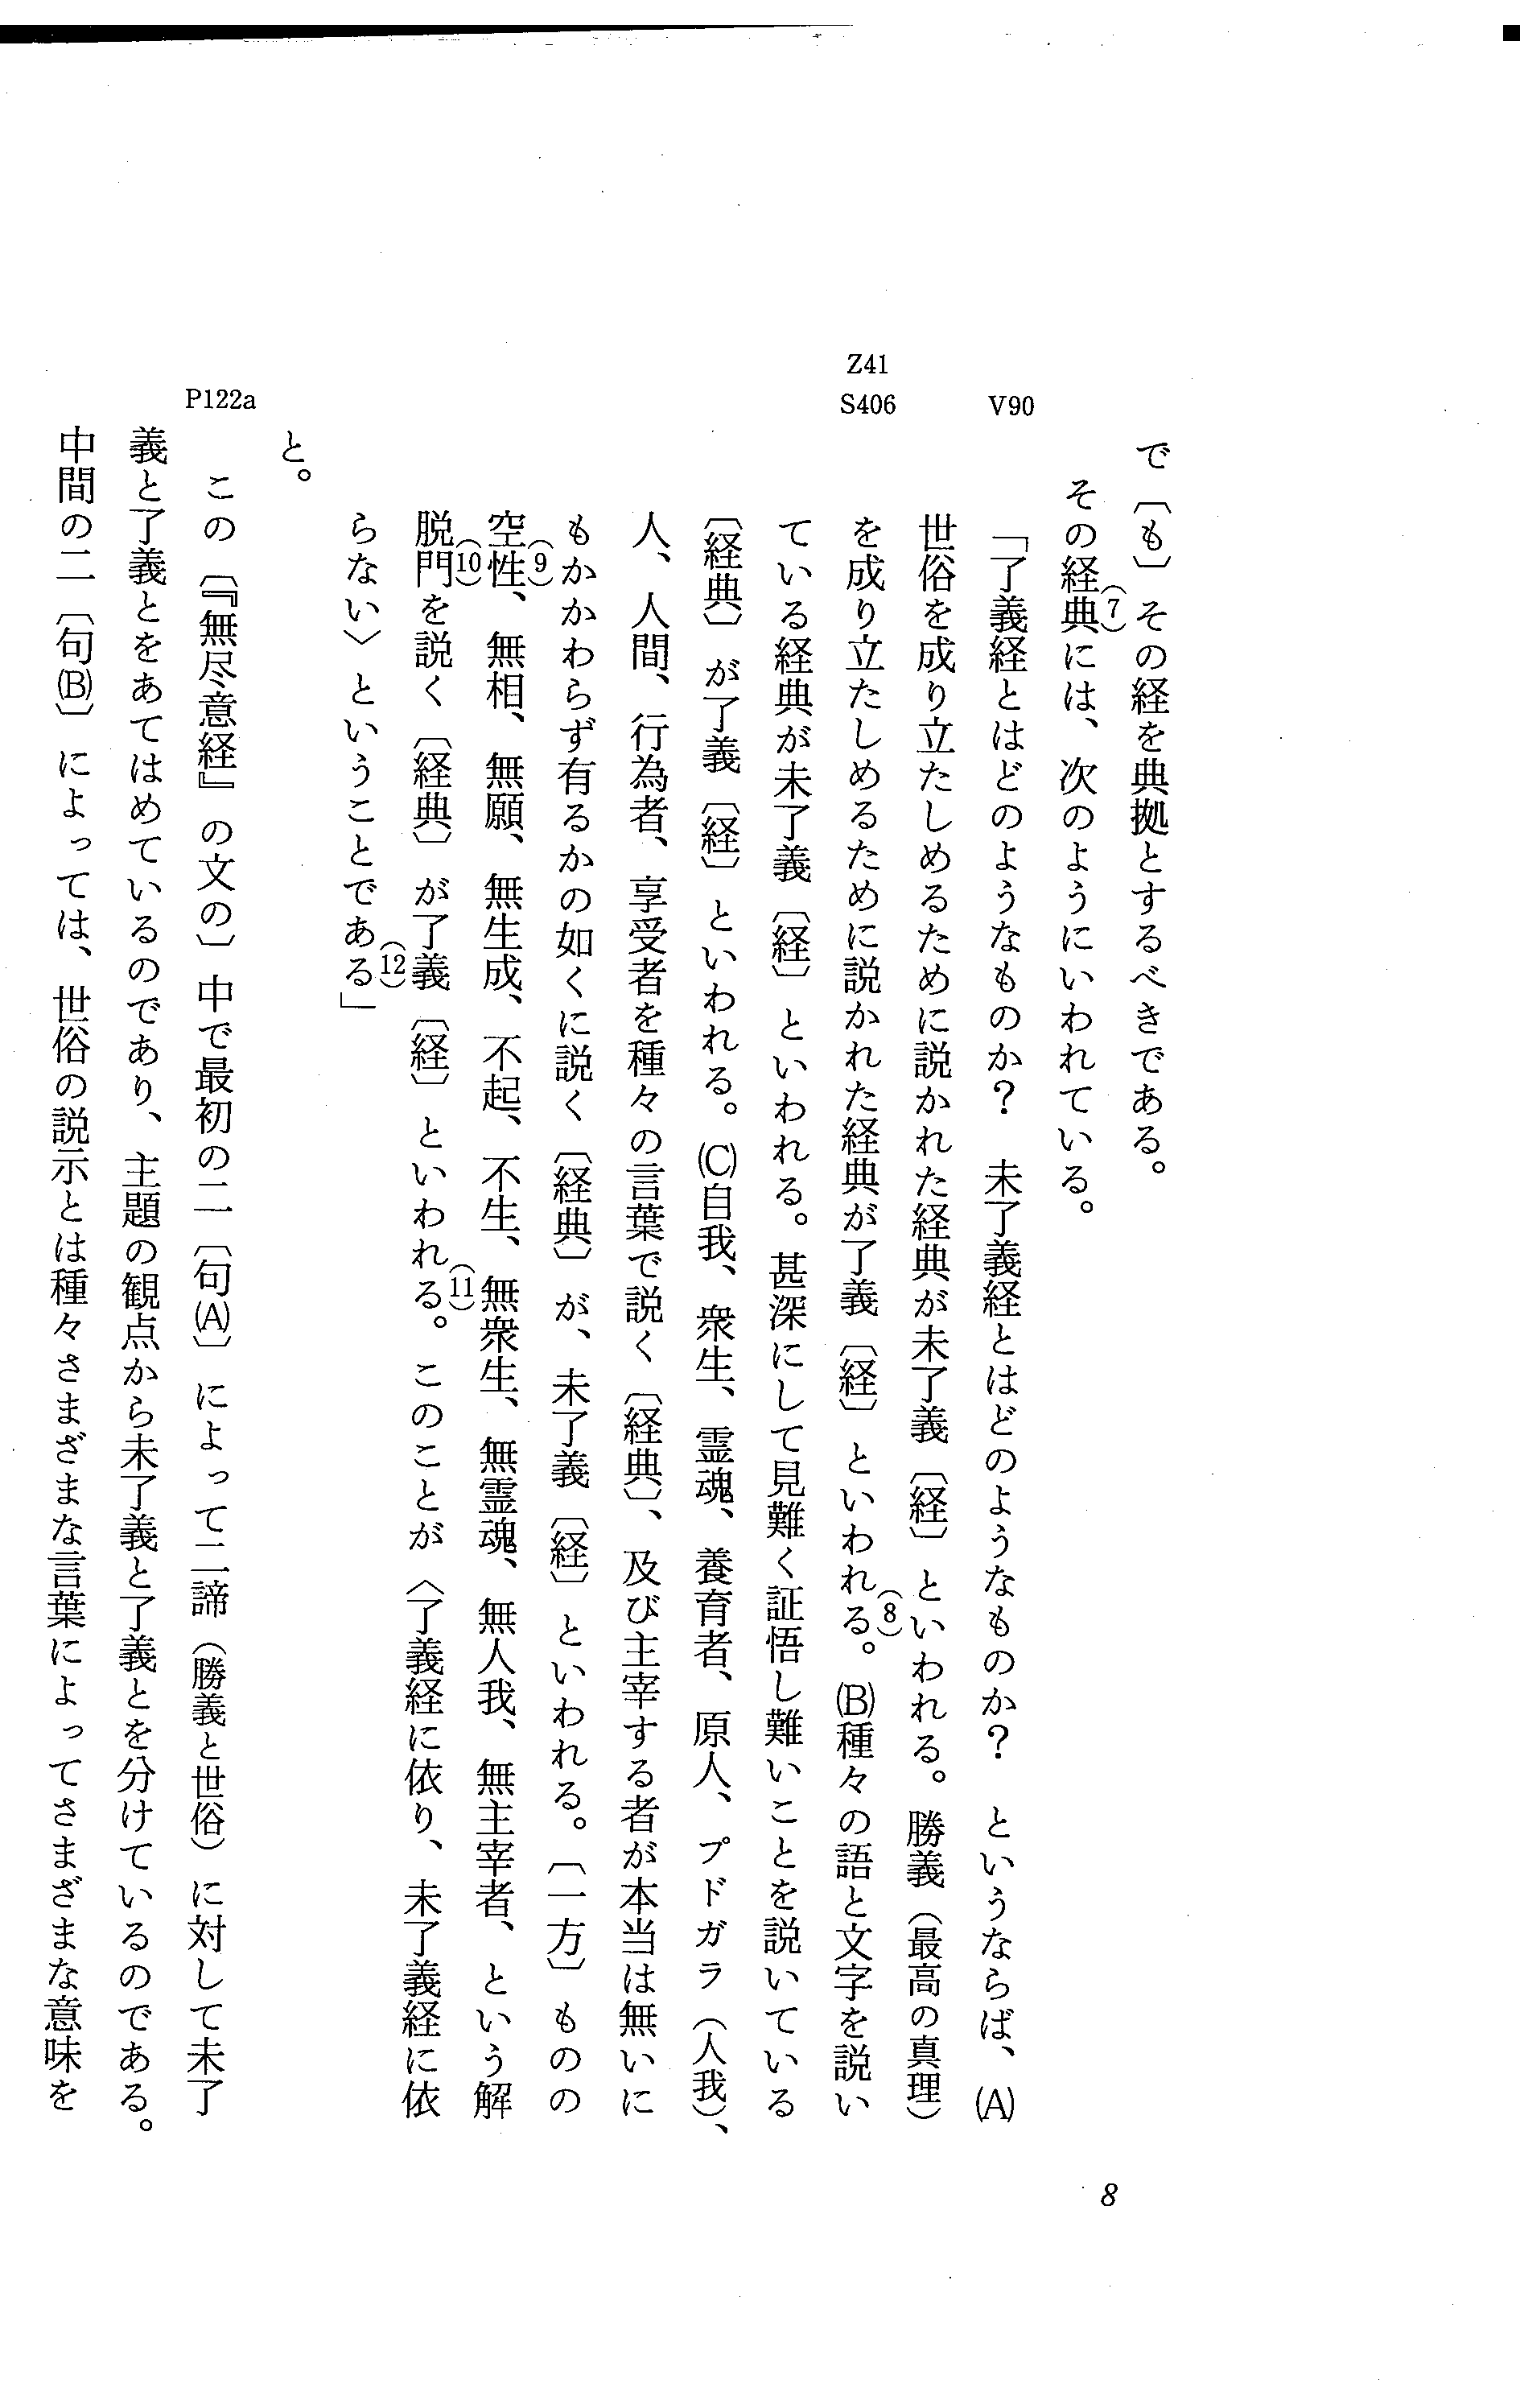 で〔も〕その経を典拠とするべきである。
その経典(7)には、次のようにいわれている。
V90
「了義経とはどのようなものか？　未了義経とはどのようなものか？　というならば、(A)
世俗を成り立たしめるために説かれた経典が未了義〔経〕といわれる。勝義（最高の真理）
Z41
S406
を成り立たしめるために説かれた経典が了義〔経〕といわれる(8)。(B)種々の語と文字を説い
ている経典が未了義〔経〕といわれる。甚深にして見難く証悟し難いことを説いている
〔経典〕が了義〔経〕といわれる。(C)自我、衆生、霊魂、養育者、原人、プドガラ（人我）、
人、人間、行為者、享受者を種々の言葉で説く〔経典〕、及び主宰する者が本当は無いに
もかかわらず有るかの如くに説く〔経典〕が、未了義〔経〕といわれる。〔一方〕ものの
空性(9)、無相、無願、無生成、不起、不生、無衆生、無霊魂、無人我、無主宰者、という解
脱門(10)を説く〔経典〕が了義〔経〕といわれる(11)。このことが〈了義経に依り、未了義経に依
らない〉ということである(12)」
と。
P122a
この〔『無尽意経』の文の〕中で最初の二〔句(A)〕によって二諦（勝義と世俗）に対して未了
義と了義とをあてはめているのであり、主題の観点から未了義と了義とを分けているのである。
中間の二〔句(B)〕によっては、世俗の説示とは種々さまざまな言葉によってさまざまな意味を
8